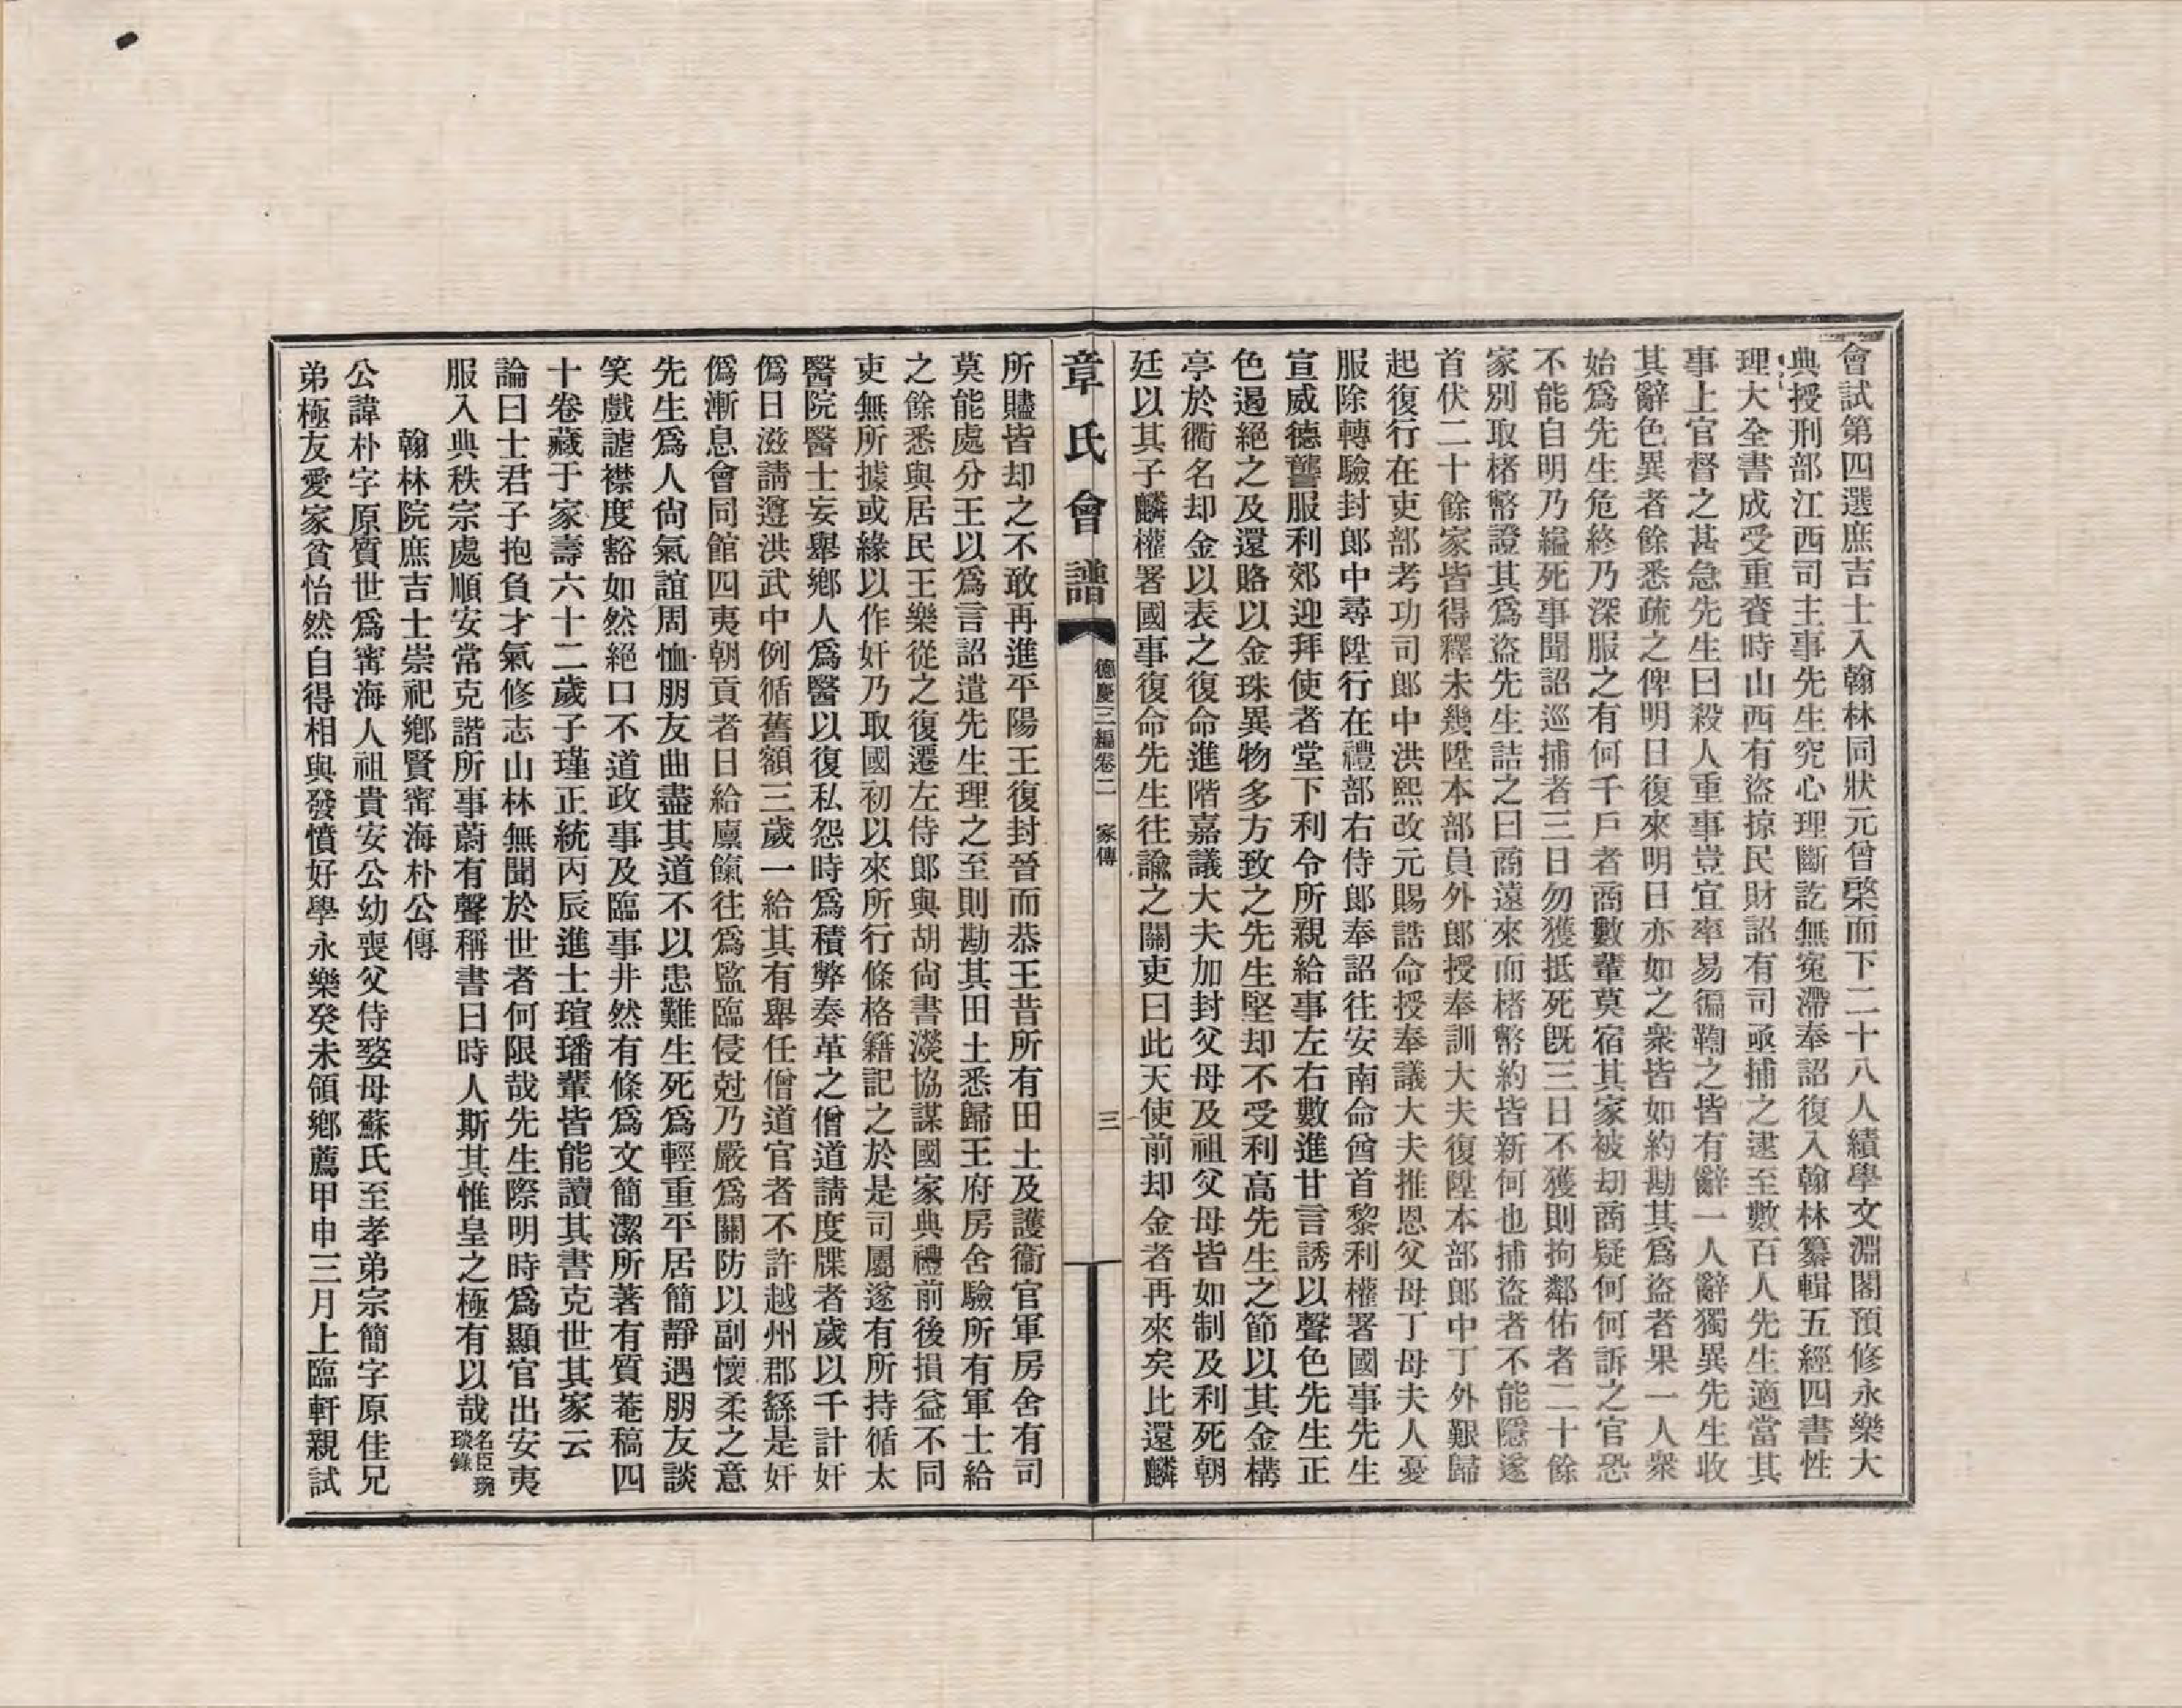 會試第四選庶吉士入翰林同狀元曾棨而下二十八人績學文淵閣預修永樂大
典授刑部江西司主事先生究心理斷訖無冤滯奉詔復入翰林纂輯五經四書性
理大全書成受重賚時山西有盜掠民財詔有司亟捕之逮至數百人先生適當其
事上官督之甚急先生曰殺人重事豈宜率易徧鞫之皆有辭一人辭獨異先生收
其辭色異者餘悉疏之俾明日復來明日亦如之衆皆如約勘其爲盜者果一人衆
始爲先生危終乃深服之有何千戶者商數輩莫宿其家被刧商疑何何訴之官恐
不能自明乃縊死事聞詔巡捕者三日勿獲抵死旣三日不獲則拘鄰佑者二十餘
家別取楮幣證其爲盜先生詰之曰商遠來而楮幣約皆新何也捕盜者不能隱遂
首伏二十餘家皆得釋未幾陞本部員外郎授奉訓大夫復陞本部郎中丁外艱歸
起復行在吏部考功司郎中洪熙改元賜誥命授奉議大夫推恩父母丁母夫人憂
服除轉驗封郎中尋陞行在禮部右侍郎奉詔往安南命酋首黎利權署國事先生
宣威德讋服利郊迎拜使者堂下利令所親給事左右數進甘言誘以聲色先生正
色遏絕之及還賂以金珠異物多方致之先生堅却不受利高先生之節以其金構
亭於衢名却金以表之復命進階嘉議大夫加封父母及祖父母皆如制及利死朝
廷以其子麟權署國事復命先生往諭之關吏曰此天使前却金者再來矣比還麟
章氏會譜
德慶三編卷二 家傳
三
所贐皆却之不敢再進平陽王復封晉而恭王昔所有田土及護衞官軍房舍有司
莫能處分王以爲言詔遣先生理之至則勘其田土悉歸王府房舍驗所有軍士給
之餘悉與居民王樂從之復遷左侍郎與胡尙書濙協謀國家典禮前後損益不同
吏無所據或緣以作奸乃取國初以來所行條格籍記之於是司屬遂有所持循太
醫院醫士妄舉鄕人爲醫以復私怨時爲積弊奏革之僧道請度牒者歲以千計奸
僞日滋請遵洪武中例循舊額三歲一給其有舉任僧道官者不許越州郡繇是奸
僞漸息會同館四夷朝貢者日給廩餼往爲監臨侵尅乃嚴爲關防以副懷柔之意
先生爲人尙氣誼周恤朋友曲盡其道不以患難生死爲輕重平居簡靜遇朋友談
笑戲謔襟度豁如然絕口不道政事及臨事井然有條爲文簡潔所著有質菴稿四
十卷藏于家壽六十二歲子瑾正統丙辰進士瑄璠輩皆能讀其書克世其家云
論曰士君子抱負才氣修志山林無聞於世者何限哉先生際明時爲顯官出安夷
服入典秩宗處順安常克諧所事蔚有聲稱書曰時人斯其惟皇之極有以哉名臣琬琰錄
翰林院庶吉士崇祀鄕賢寗海朴公傳
公諱朴字原質世爲寗海人祖貴安公幼喪父侍嫠母蘇氏至孝弟宗簡字原佳兄
弟極友愛家貧怡然自得相與發憤好學永樂癸未領鄕薦甲申三月上臨軒親試